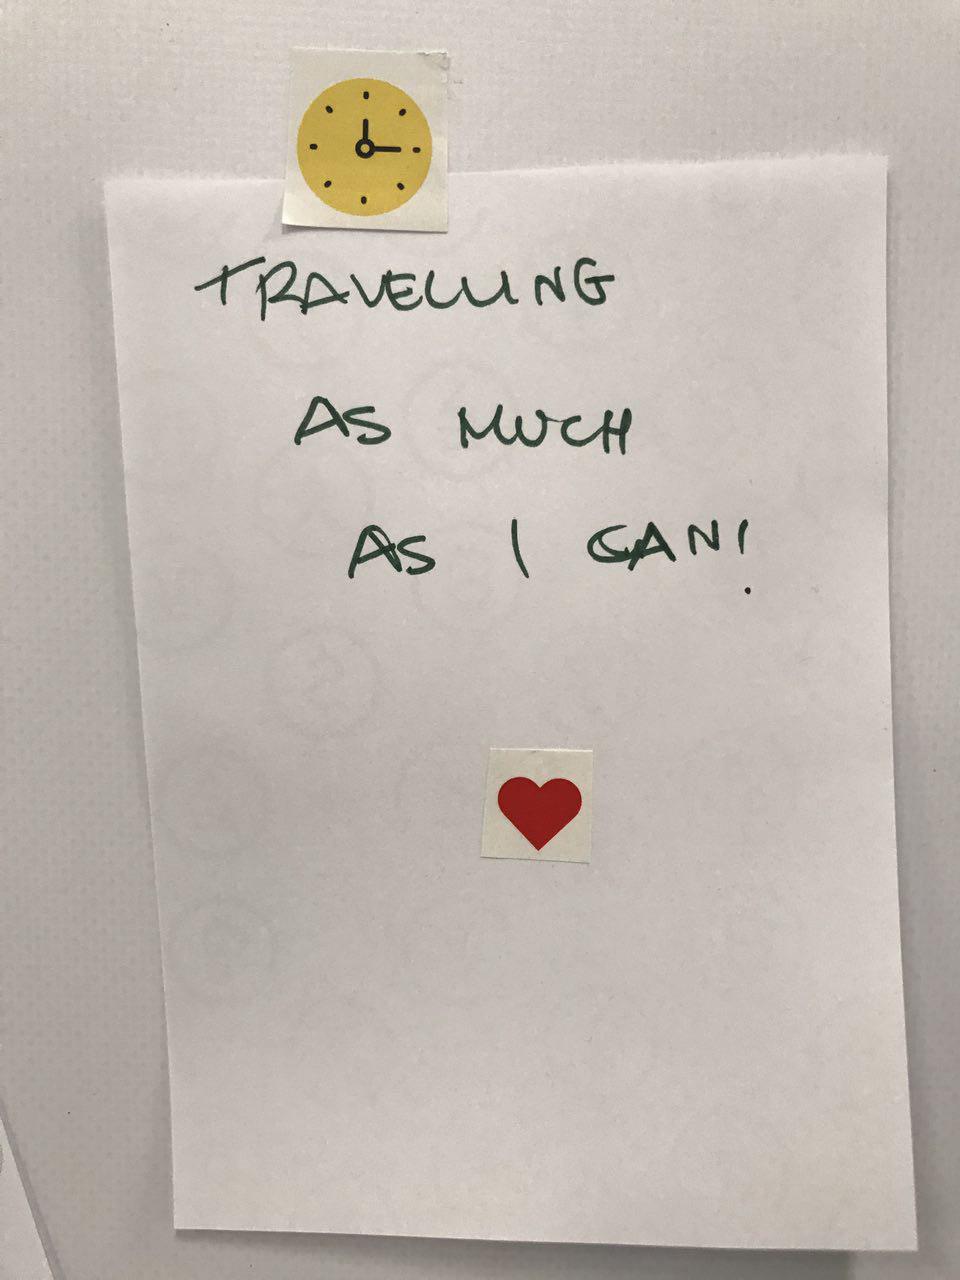 TRAVELLING
AS MUCH
AS I CAN!